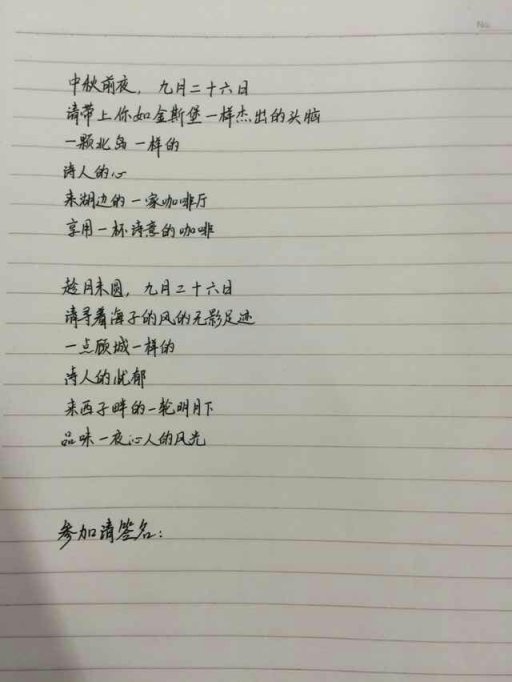 中秋前夜，九月二十六日
请带上你如金斯堡一样杰出的头脑
一颗北岛一样的
诗人的心
来湖边的一家咖啡厅
享用一杯诗意的咖啡
趁月未圆，九月二十六日
请寻着海子的风的无影足迹
一点顾城一样的
诗人的忧郁
来西子畔的一轮明月下
品味一夜沁人的风光
参加请签名：